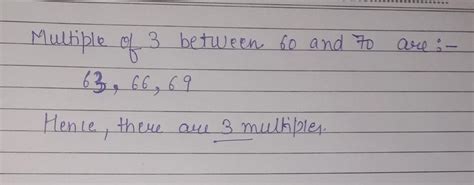 Multiple of 3 between 60 and 70 are :-
63, 66, 69
Hence, there are 3 multiples.